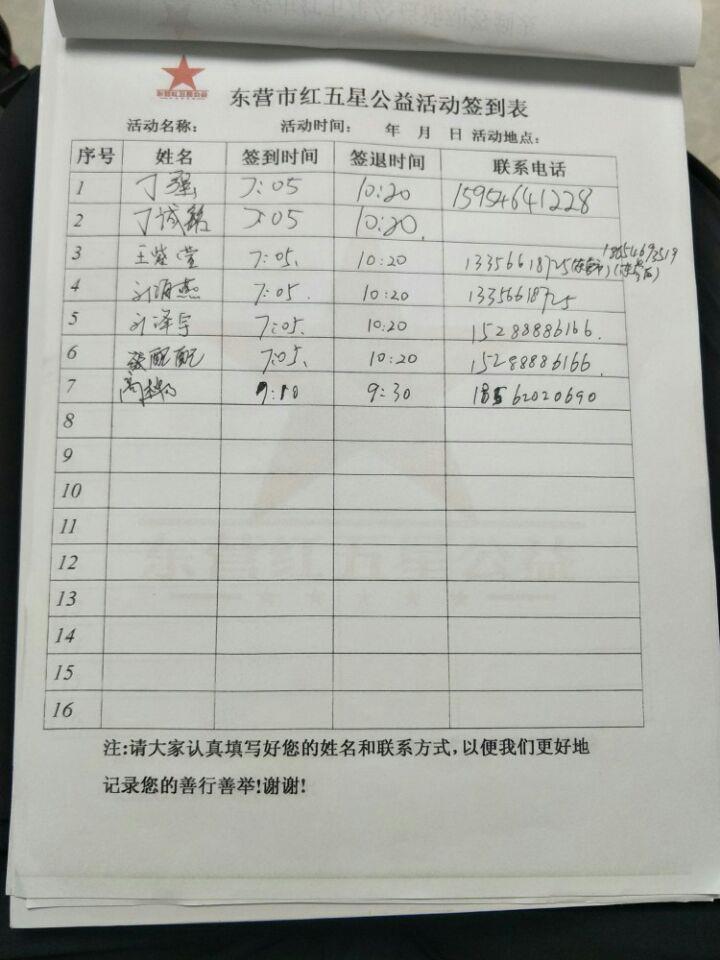 东营红五星公益
东营市红五星公益活动签到表
活动名称： 活动时间： 年 月 日 活动地点：
序号 姓名 签到时间 签退时间 联系电话
1 丁强 7:05 10:20 15954641228
2 丁诚铭 7:05 10:20.
3 王莹莹 7:05. 10:20 13356618725
4 刘海燕 7:05. 10:20 13356618725
5 刘泽宇 7:05. 10:20 15288886166.
6 张配配 7:05. 10:20 15288886166.
7 9:10 9:30 18562020690
8
9
10
11
12
13
14
15
16
东营红五星公益
注:请大家认真填写好您的姓名和联系方式,以便我们更好地
记录您的善行善举!谢谢!